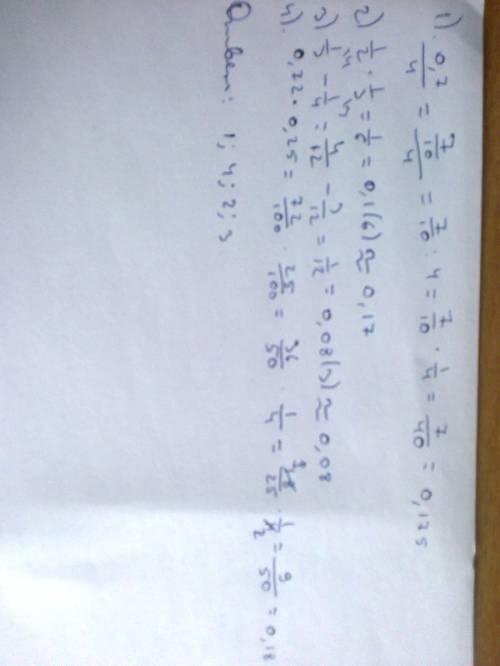 1). 0,7/4 = 7/10/4 = 7/10 : 4 = 7/10 · 1/4 = 7/40 = 0,175
2) 1/2 · 1/3 = 1/6 = 0,1(6) ≈ 0,17
3) 1/3\4 - 1/4\3 = 4/12 - 3/12 = 1/12 = 0,08(3) ≈ 0,08
4). 0,72 · 0,25 = 72/100 · 25/100 = 36/50 · 1/4 = 18/25 · 1/4 = 9/50 = 0,18
Ответ: 1; 4; 2; 3